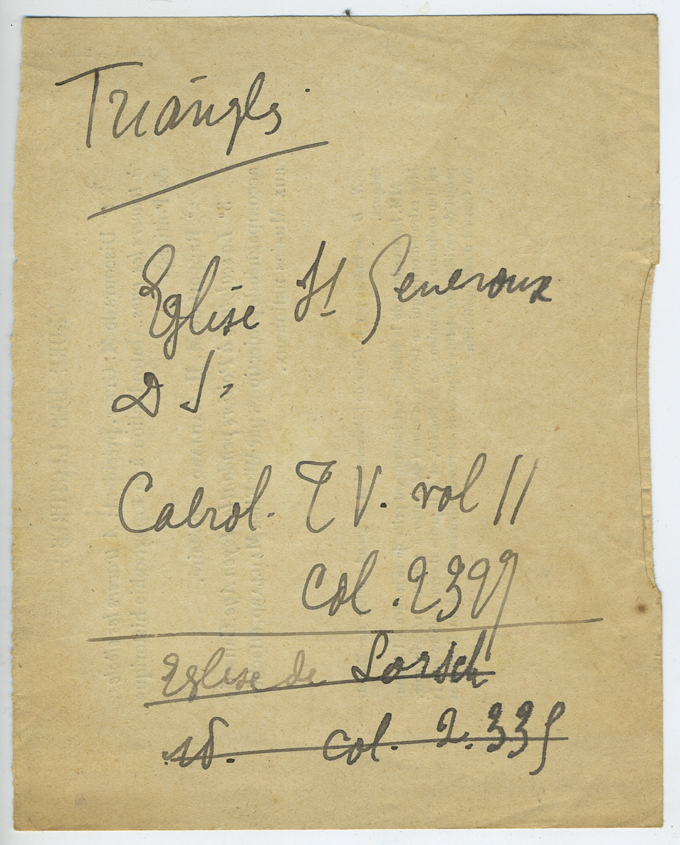 Triangles
Eglise St Generoux
D S.
Cabrol. T V. vol II
col. 2397
Eglise de Lorsch
id. col. 2.335